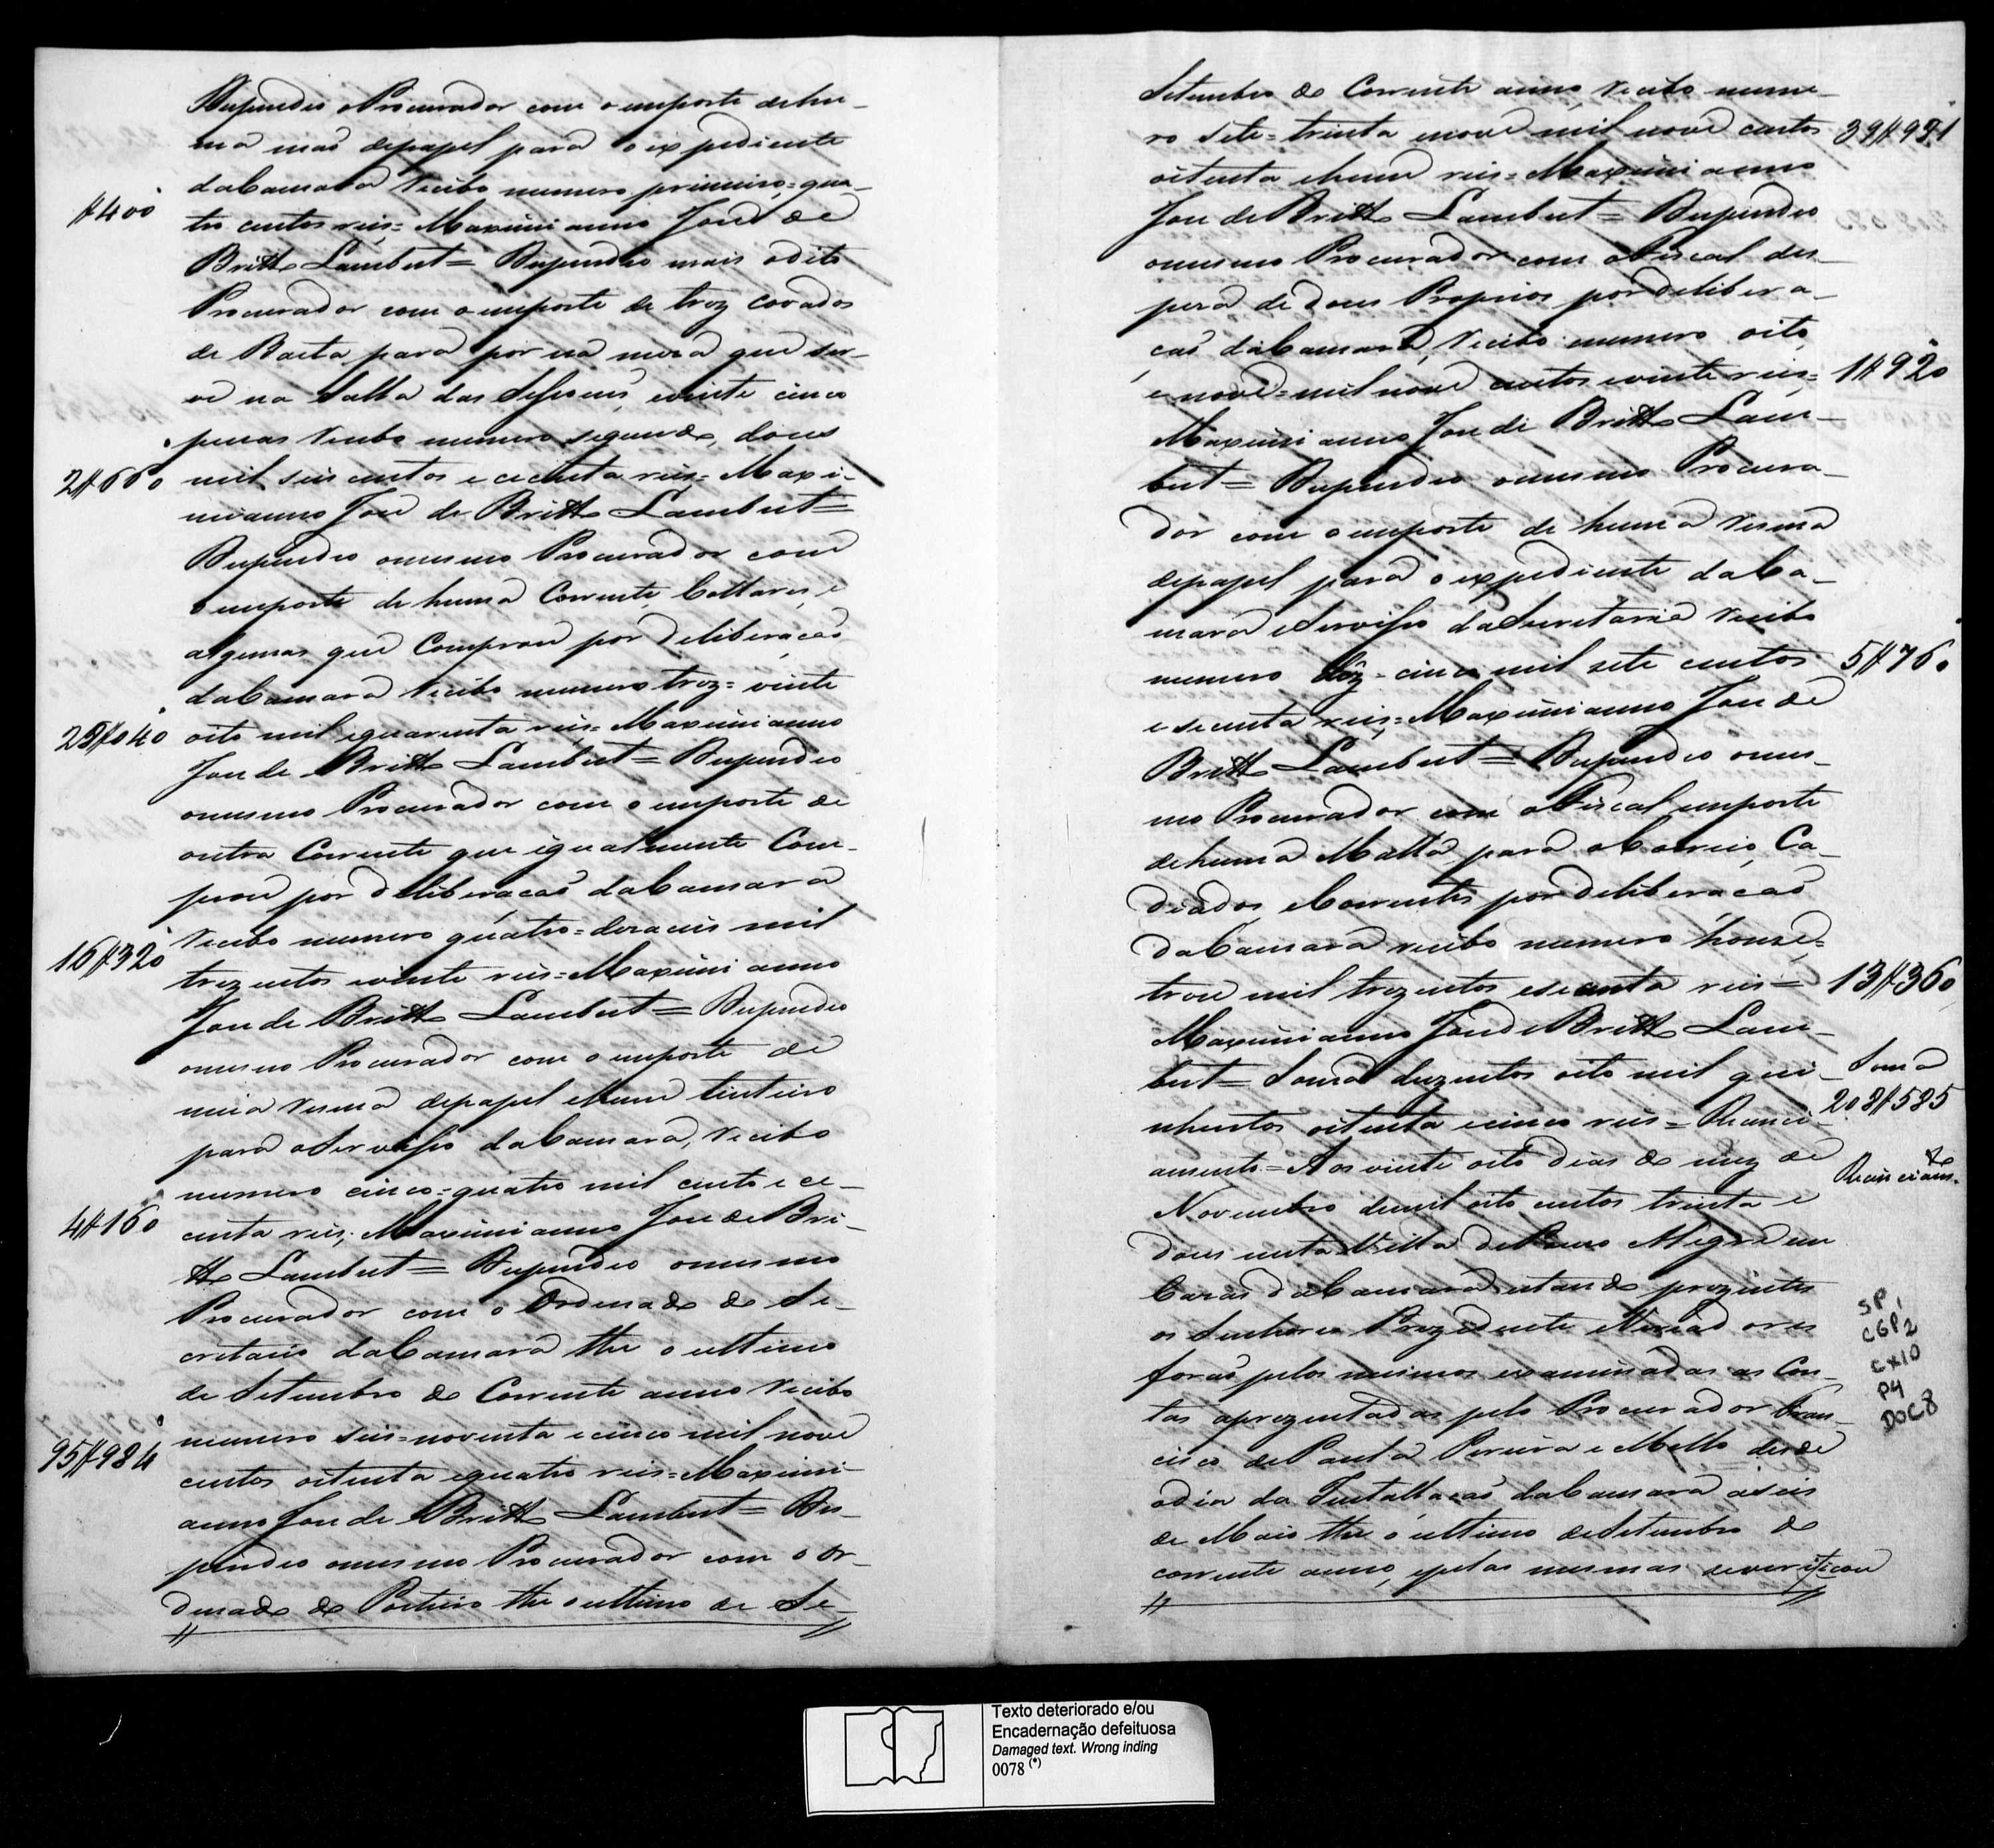 Despendeo o Procurador com o importe de hu-
ma mão de papel para o expediente
da Camara Recibo numero primeiro = qua-
#400
tro centos reis = Maximianno José de
Britto Lambert = Despendeo mais o dito
Procurador com o importe de trez covados
de Baeta para por na meza que ser-
ve na Salla das Sessoens, e vinte cinco
pennas Recibo numero segundo, dous
2#660
mil seis centos e cecenta reis = Maxi-
mianno José de Britto Lambert =
Despendeo o mesmo Procurador com
o importe de huma Corrente, Collares, e
algemas que Comprou por deliberação
da Camara Recibo numero trez = vinte
28#040
oito mil e quarenta reis = Maximianno
José de Britto Lambert = Despendeo
o mesmo Procurador com o importe de
outra Corrente que igualmente Com-
prou por deliberação da Camara
Recibo numero quatro = dezaceis mil
16#320
trezentos e vinte reis = Maximianno
José de Britto Lambert = Despendeo
o mesmo Procurador com o importe de
meia resma de papel e hum tinteiro
para o Serviço da Camara, Recibo
numero cinco = quatro mil cento e ce-
4#160
centa reis; Maximianno José de Bri-
tto Lambert = Despendeo o mesmo
Procurador com o Ordenado do Se-
cretario da Camara the o ultimo
de Setembro do Corrente anno Recibo
numero seis = noventa e cinco mil nove
95#984
centos oitenta e quatro reis = Maximi-
anno José de Britto Lambert = Des-
pendeo o mesmo Procurador com o Or-
denado do Porteiro the o ultimo de Se-
Setembro do Corrente anno, Recibo nume-
ro sete = trinta e nove mil nove centos
39#981
oitenta e hum reis = Maximianno
José de Britto Lambert = Despendeo
o mesmo Procurador com o Fiscal des-
peza de dous Proprios por delibera-
ção da Camara, Recibo numero oito,
e nove = mil nove centos e vinte reis =
1#920
Maximianno José de Britto Lam-
bert = Despendeo o mesmo Procura-
dor com o importe de huma resma
de papel para o expediente da Ca-
mara e Serviço da Secretaria Recibo
numero déz = cinco mil sete centos
5#760
e secenta reis = Maximianno José de
Britto Lambert = Despendeo o mes-
mo Procurador com o Fiscal importe
de huma Malla para o Correio, Ca-
diados, e Correntes por deliberação
da Camara recibo numero honze =
treze mil trezentos e secenta reis =
13#360
Maximianno José de Britto Lam-
bert = Soma duzentos oito mil qui-
Soma
208#585
nhentos oitenta e cinco reis =
amento = Aos vinte oito dias do mez de
Novembro de mil oito centos trinta e
dous nesta Villa de Pouso Alegre em
Cazas da Camara estando prezentes
os Senhores Prezidente e Vereadores
forão pelos mesmos examinadas as Con-
tas aprezentadas pelo Procurador Fran-
cisco de Paula Pereira e Mello desde
o dia da Installação da Camara a seis
de Maio the o ultimo de Setembro do
corrente anno, e pelas mesmas se verificou
SP1
CGP2
CX10
P4
DOC8
Texto deteriorado e/ou
Encadernação defeituosa
Damaged text. Wrong inding
0078 (*)